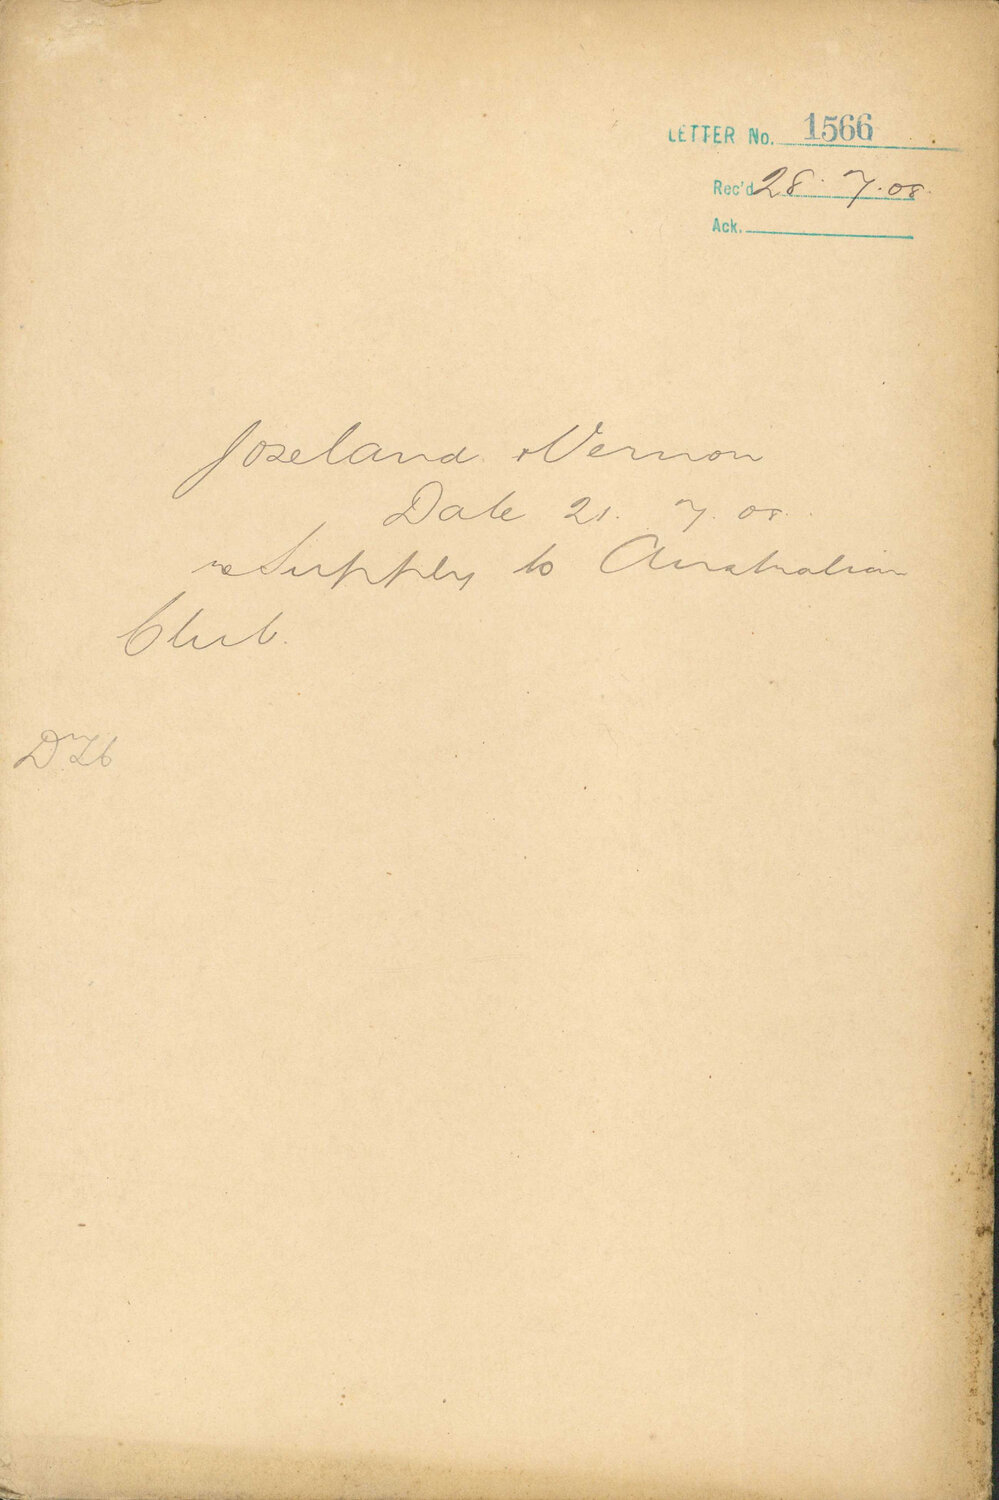 LETTER No. 1566
Rec'd 28. 7. 08.
Ack.
Joseland & Vernon
Date 21. 7. 08.
re Supply to Australian
Club.